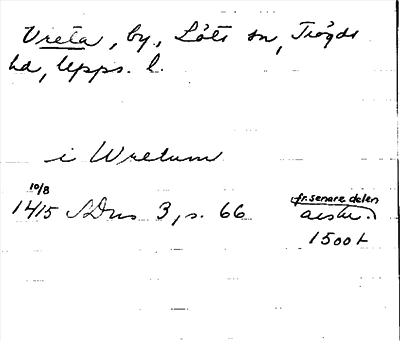 Vreta, by, Löts sn, Trögds
hd, Upps. l.
i Wretum
10/8
1415 SDns 3, s. 66
fr. senare delen
avskr.
1500 t